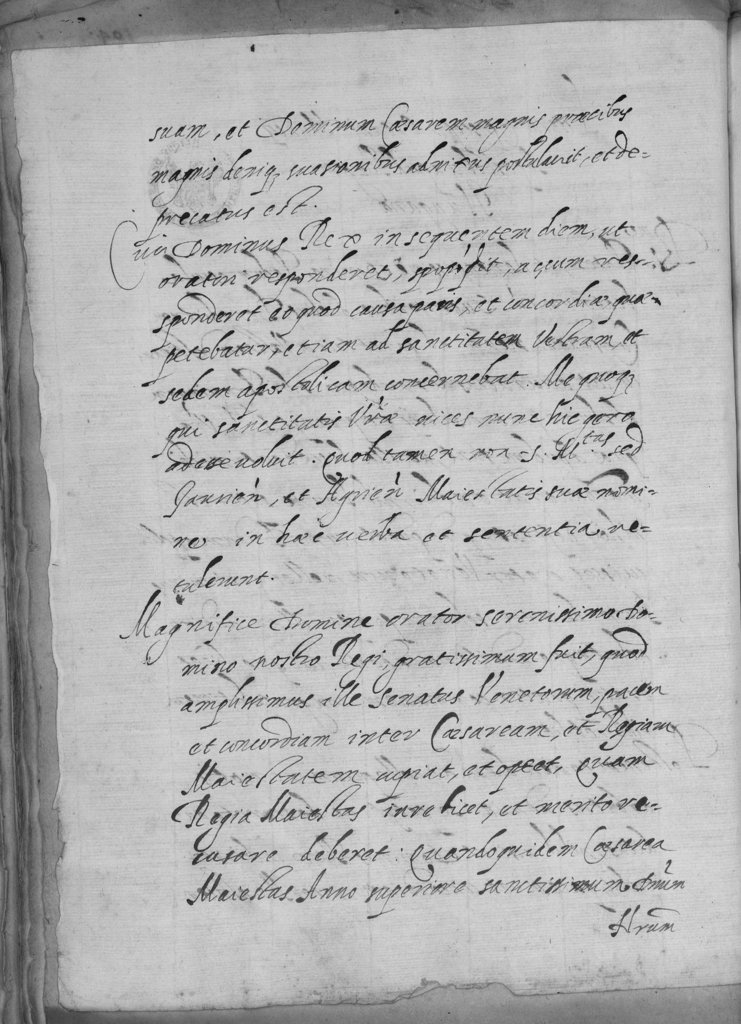 suam, et Dominum Cæsarem magnis præcibus
magnis deniq, suasionibus adnixus postulavit, et de-
precatus est.
Cui Dominus Rex in sequentem diem, ut
oratori responderet,
sponderet eo quod causa pacis, et concordiæ, quæ
petebatur, etiam ad sanctitatem Vestram, et
sedem apostolicam concernebat. Me quoq,
qui sanctitatis Vræ vices nunc hic gero
adesse voluit. Quod tamen non s. M.tas sed
et Agrien Maiestatis suæ nomi-
ne in hæc verba et sententia re-
tulerunt.
Magnifice Domine orator serenissimo Do-
mino nostro Regi, gratissimum fuit, quod
amplissimus ille senatus Venetorum, pacem
et concordiam inter Cæsaream, et Regiam
Maiestatem cupiat, et optet, Quam
Regia Maiestas et merito re-
cusare deberet: Quandoquidem Cæsarea
Maiestas Anno superiore sanctissimum Dnum
Nrum